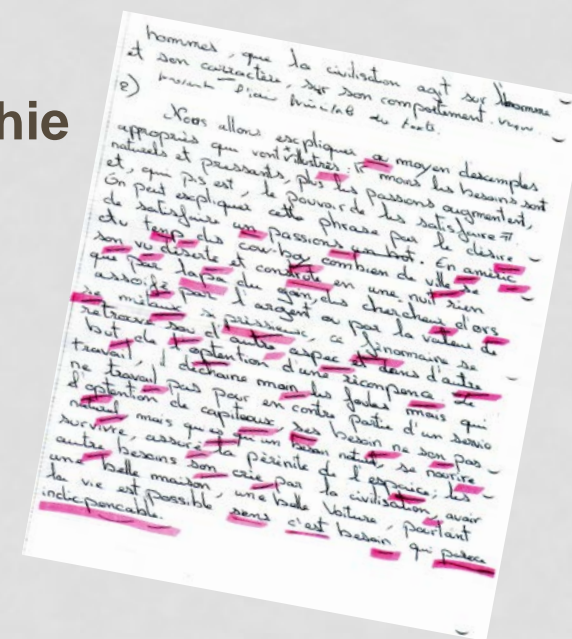 hie
hommes, que la civilisation agit sur l'homme
et son caractère, sur son comportement.
2)
Nous allons expliquer, a moyen d'exemples
appropriés qui vont illustrés: "moins les besoins sont
naturels et pressants, plus les passons augmentent,
et, qui pis est, le pouvoir de les satisfaire".
On peut expliquer cette phrase par le désire
de satisfaire passions
du temps des cow-boy combien de ville se
son vu déserte et construite en une nuit rien
que par du gain, des chercheurs d'ors
assoifé par l'argent ou par la valeur de
se métal si prissieux, ce finomaire se
retrouve sou d'autre aspec et dens d'autre
but de l'optention d'une récompence. Le
travail, déchaine main les foules mais qui
ne travail pas pour en contre partie d'un servio
d'optention de capiteaux, ses besoin ne son pas
naturel mais qui es qu'un besoin naturel, se nourire
survivre, assur la périnité de l'espaice; les
autre besoins son crée par la civilisation, avair
une belle maison, une belle voiture, pourtant
la vie est possible sens c'est besoin qui
indicpencable.